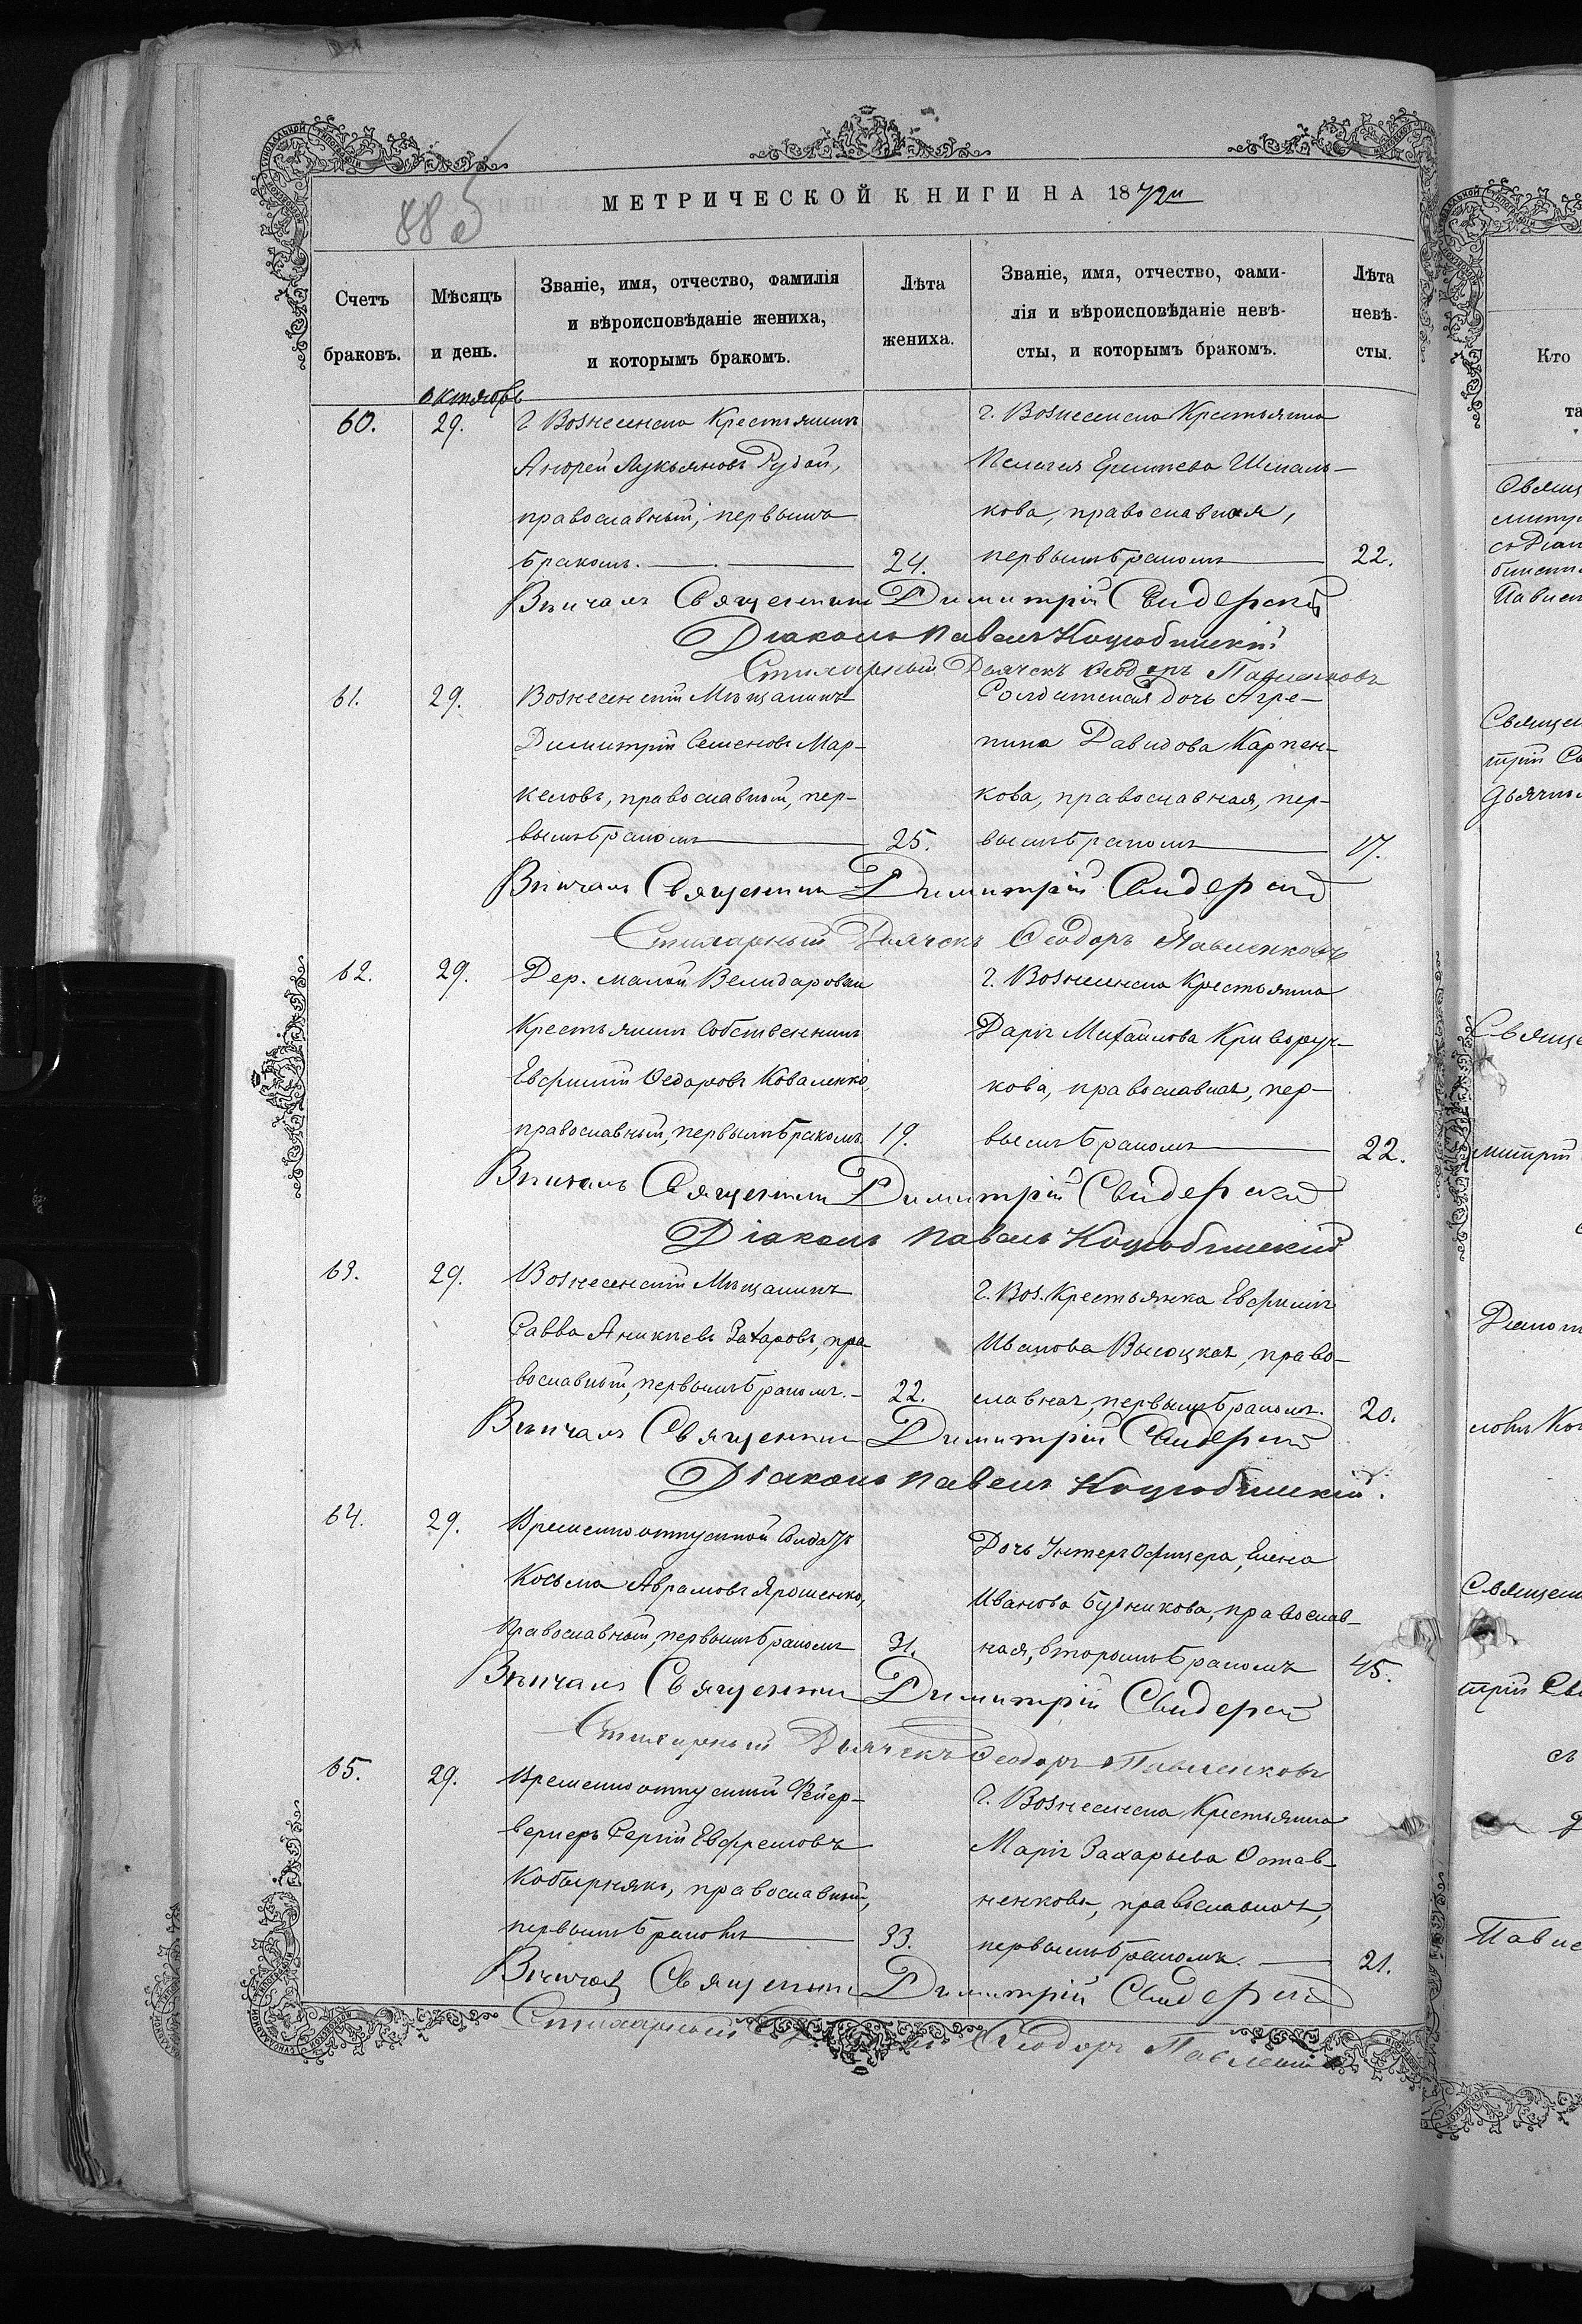 МЕТРИЧЕСКОЙ КНИГИ НА 1872й
88об
Счетъ браковъ.
Мѣсяцъ и день.
Званіе, имя, отчество, фамилія
и вѣроисповѣданіе жениха,
и которымъ бракомъ.
Лѣта
жениха.
Званіе, имя, отчество, фами-
лія и вѣроисповѣданіе невѣ-
сты, и которымъ бракомъ.
Лѣта
невѣ-
сты.
Октябрь
60.
29.
г. Вознесенска Крестьянинъ
Андрей Лукьяновъ Рудой,
православный, первымъ
бракомъ.
24.
г. Вознесенска Крестьянка
Пелагея
кова, православная,
первымъ бракомъ
22.
Вѣнчалъ Священникъ Димитрій Свидерскій
Діаконъ Павелъ Коцюбинскій
Стихарный Дьячекъ Ѳеодоръ Павленковъ
61.
29.
Вознесенскій Мѣщанинъ
Димитрій Семеновъ Мар-
келовъ, православный, пер-
вымъ бракомъ
25.
Солдатская дочь Агре-
пина Давидова Карпен-
кова, православная, пер-
вымъ бракомъ
17.
Вѣнчалъ Священникъ Димитрій Свидерскій
Стихарный Дьячекъ Ѳеодоръ Павленковъ
62.
29.
Дер. малой Велидаровки
Крестьянинъ Собственникъ
Евфимій Ѳедоровъ Коваленко,
православный, первымъ бракомъ.
19.
г. Вознесенска Крестьянка
Дарія Михайлова Криворуч-
кова, православная, пер-
вымъ бракомъ
22.
Вѣнчалъ Священникъ Димитрій Свидерскій
Діаконъ Павелъ Коцюбинскій
63.
29.
Вознесенскій Мѣщанинъ
Савва Аникіевъ Захаровъ, пра-
вославный, первымъ бракомъ.
22.
г. Воз. Крестьянка Евфимія
Иванова Высоцкая, право-
славная, первымъ бракомъ.
20.
Вѣнчалъ Священникъ Димитрій Свидерскій
Діаконъ Павелъ Коцюбинскій.
64.
29.
Временно отпускной Солдатъ
Косьма Аврамовъ Ярошенко,
Православный, первымъ бракомъ
31.
Дочь Унтеръ Офицера, Елена
Иванова Будникова, православ-
ная, вторымъ бракомъ
45.
Вѣнчалъ Священникъ Димитрій Свидерскій
Стихарный Дьячекъ Ѳеодоръ Павленковъ
65.
29.
Временно отпускный Фейер-
веркеръ Сергій Евфремовъ
Кобырнякъ, православный,
первымъ бракомъ
33.
г. Вознесенска Крестьянка
Марія Захарьева Остав-
ненкова, православная,
первымъ бракомъ.
21.
Вѣнчалъ Священникъ Димитрій Свидерскій
Стихарный Ѳеодоръ
Кто